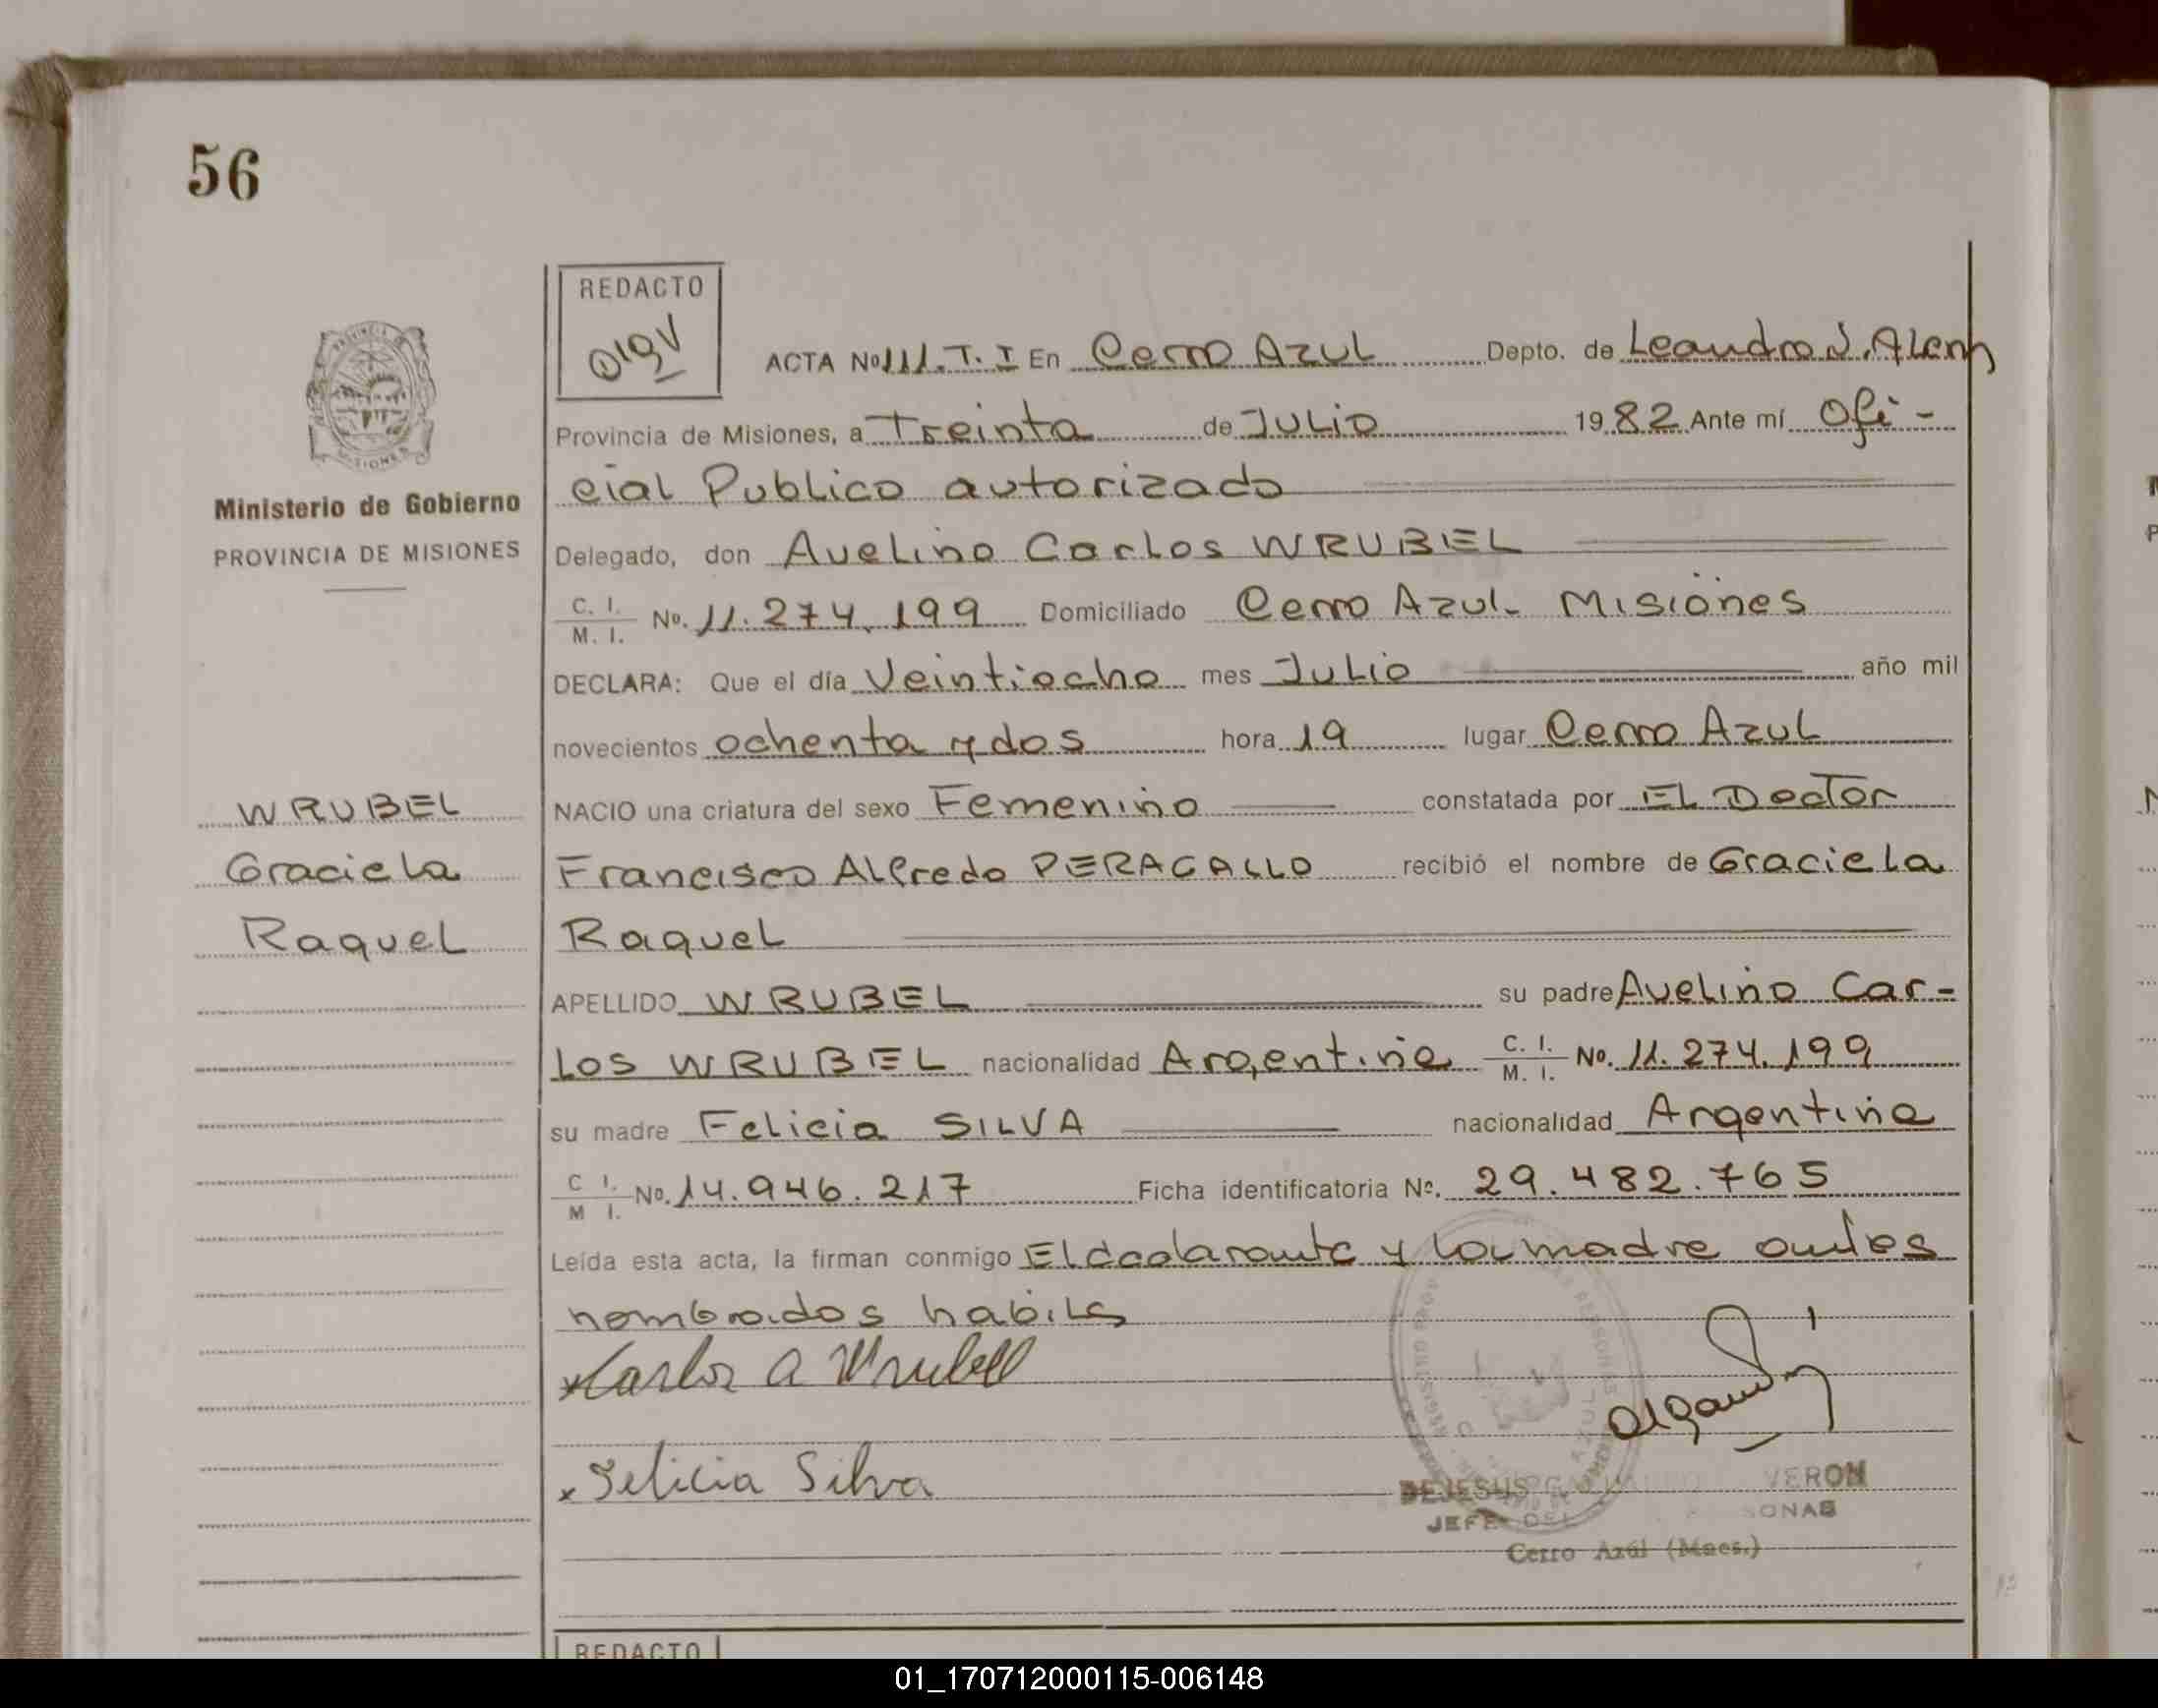 56
REDACTO
ACTA Nº 111. T. I En Cerro Azul Depto. de Leandro N. Alem
Provincia de Misiones, a Treinta de Julio 1982 Ante mí Ofi-
cial Publico autorizado
Ministerio de Gobierno
PROVINCIA DE MISIONES
Delegado, don Avelino Carlos WRUBEL
C. I. M. I. Nº. 11.274.199 Domiciliado Cerro Azul- Misiones
DECLARA: Que el día Veintiocho mes Julio año mil
novecientos ochenta y dos hora 19 lugar Cerro Azul
WRUBEL
Graciela
Raquel
NACIO una criatura del sexo Femenino constatada por El Doctor
Francisco Alfredo PERAGALLO recibió el nombre de Graciela
Raquel
APELLIDO WRUBEL su padre Avelino Car-
los WRUBEL nacionalidad Argentina C. I. M. I. Nº. 11.274.199
su madre Felicia SILVA nacionalidad Argentina
C I. M I. Nº. 14.946.217 Ficha identificatoria Nº. 29.482.765
Leída esta acta, la firman conmigo El declarante y la madre antes
nombrados habiles
Carlos A Wrubell
Felicia Silva
DEJESUS VERON
JEFE DEL SONAS
Cerro Azúl (Mnes.)
REDACTO
01_170712000115-006148